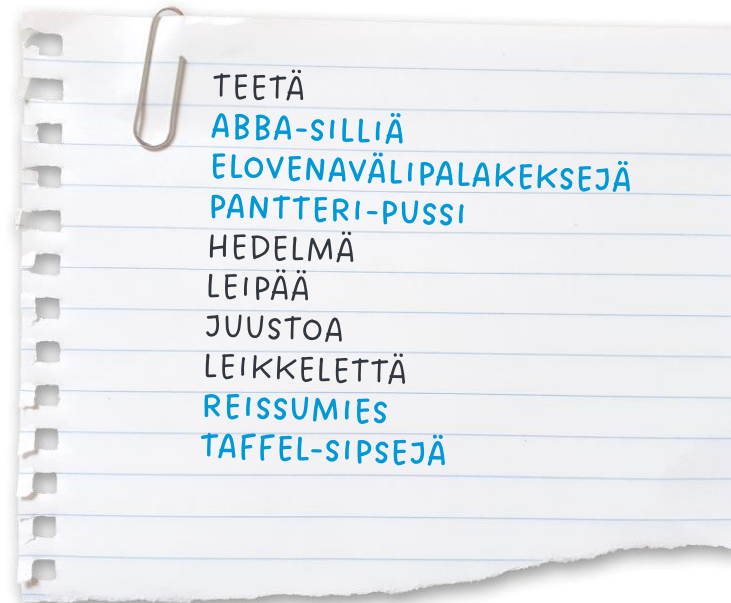 TEETÄ
ABBA-SILLIÄ
ELOVENAVÄLIPALAKEKSEJÄ
PANTTERI-PUSSI
HEDELMÄ
LEIPÄÄ
JUUSTOA
LEIKKELETTÄ
REISSUMIES
TAFFEL-SIPSEJÄ